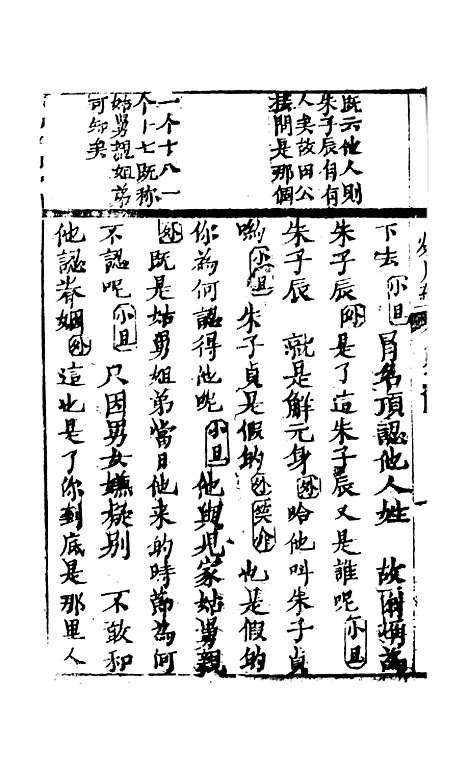 既云他人則
朱子辰自有
人矣故田公
接問是那個
一个十八一
个十七既称
姑舅諒姐弟
可知矣
下去小旦冐名頂認他人姓 故
朱子辰外是了這朱子辰又是誰呢小旦
朱子辰 就是解元身外哈他叫朱子貞
喲小旦朱子貞是假的外笑介也是假的
你為何認得他呢小旦他與児家姑舅親
外既是姑舅姐弟當日他来的時節為何
不認呢小旦只因男女嫌疑别 不敢和
他認眷姻外這也是了你到底是那里人